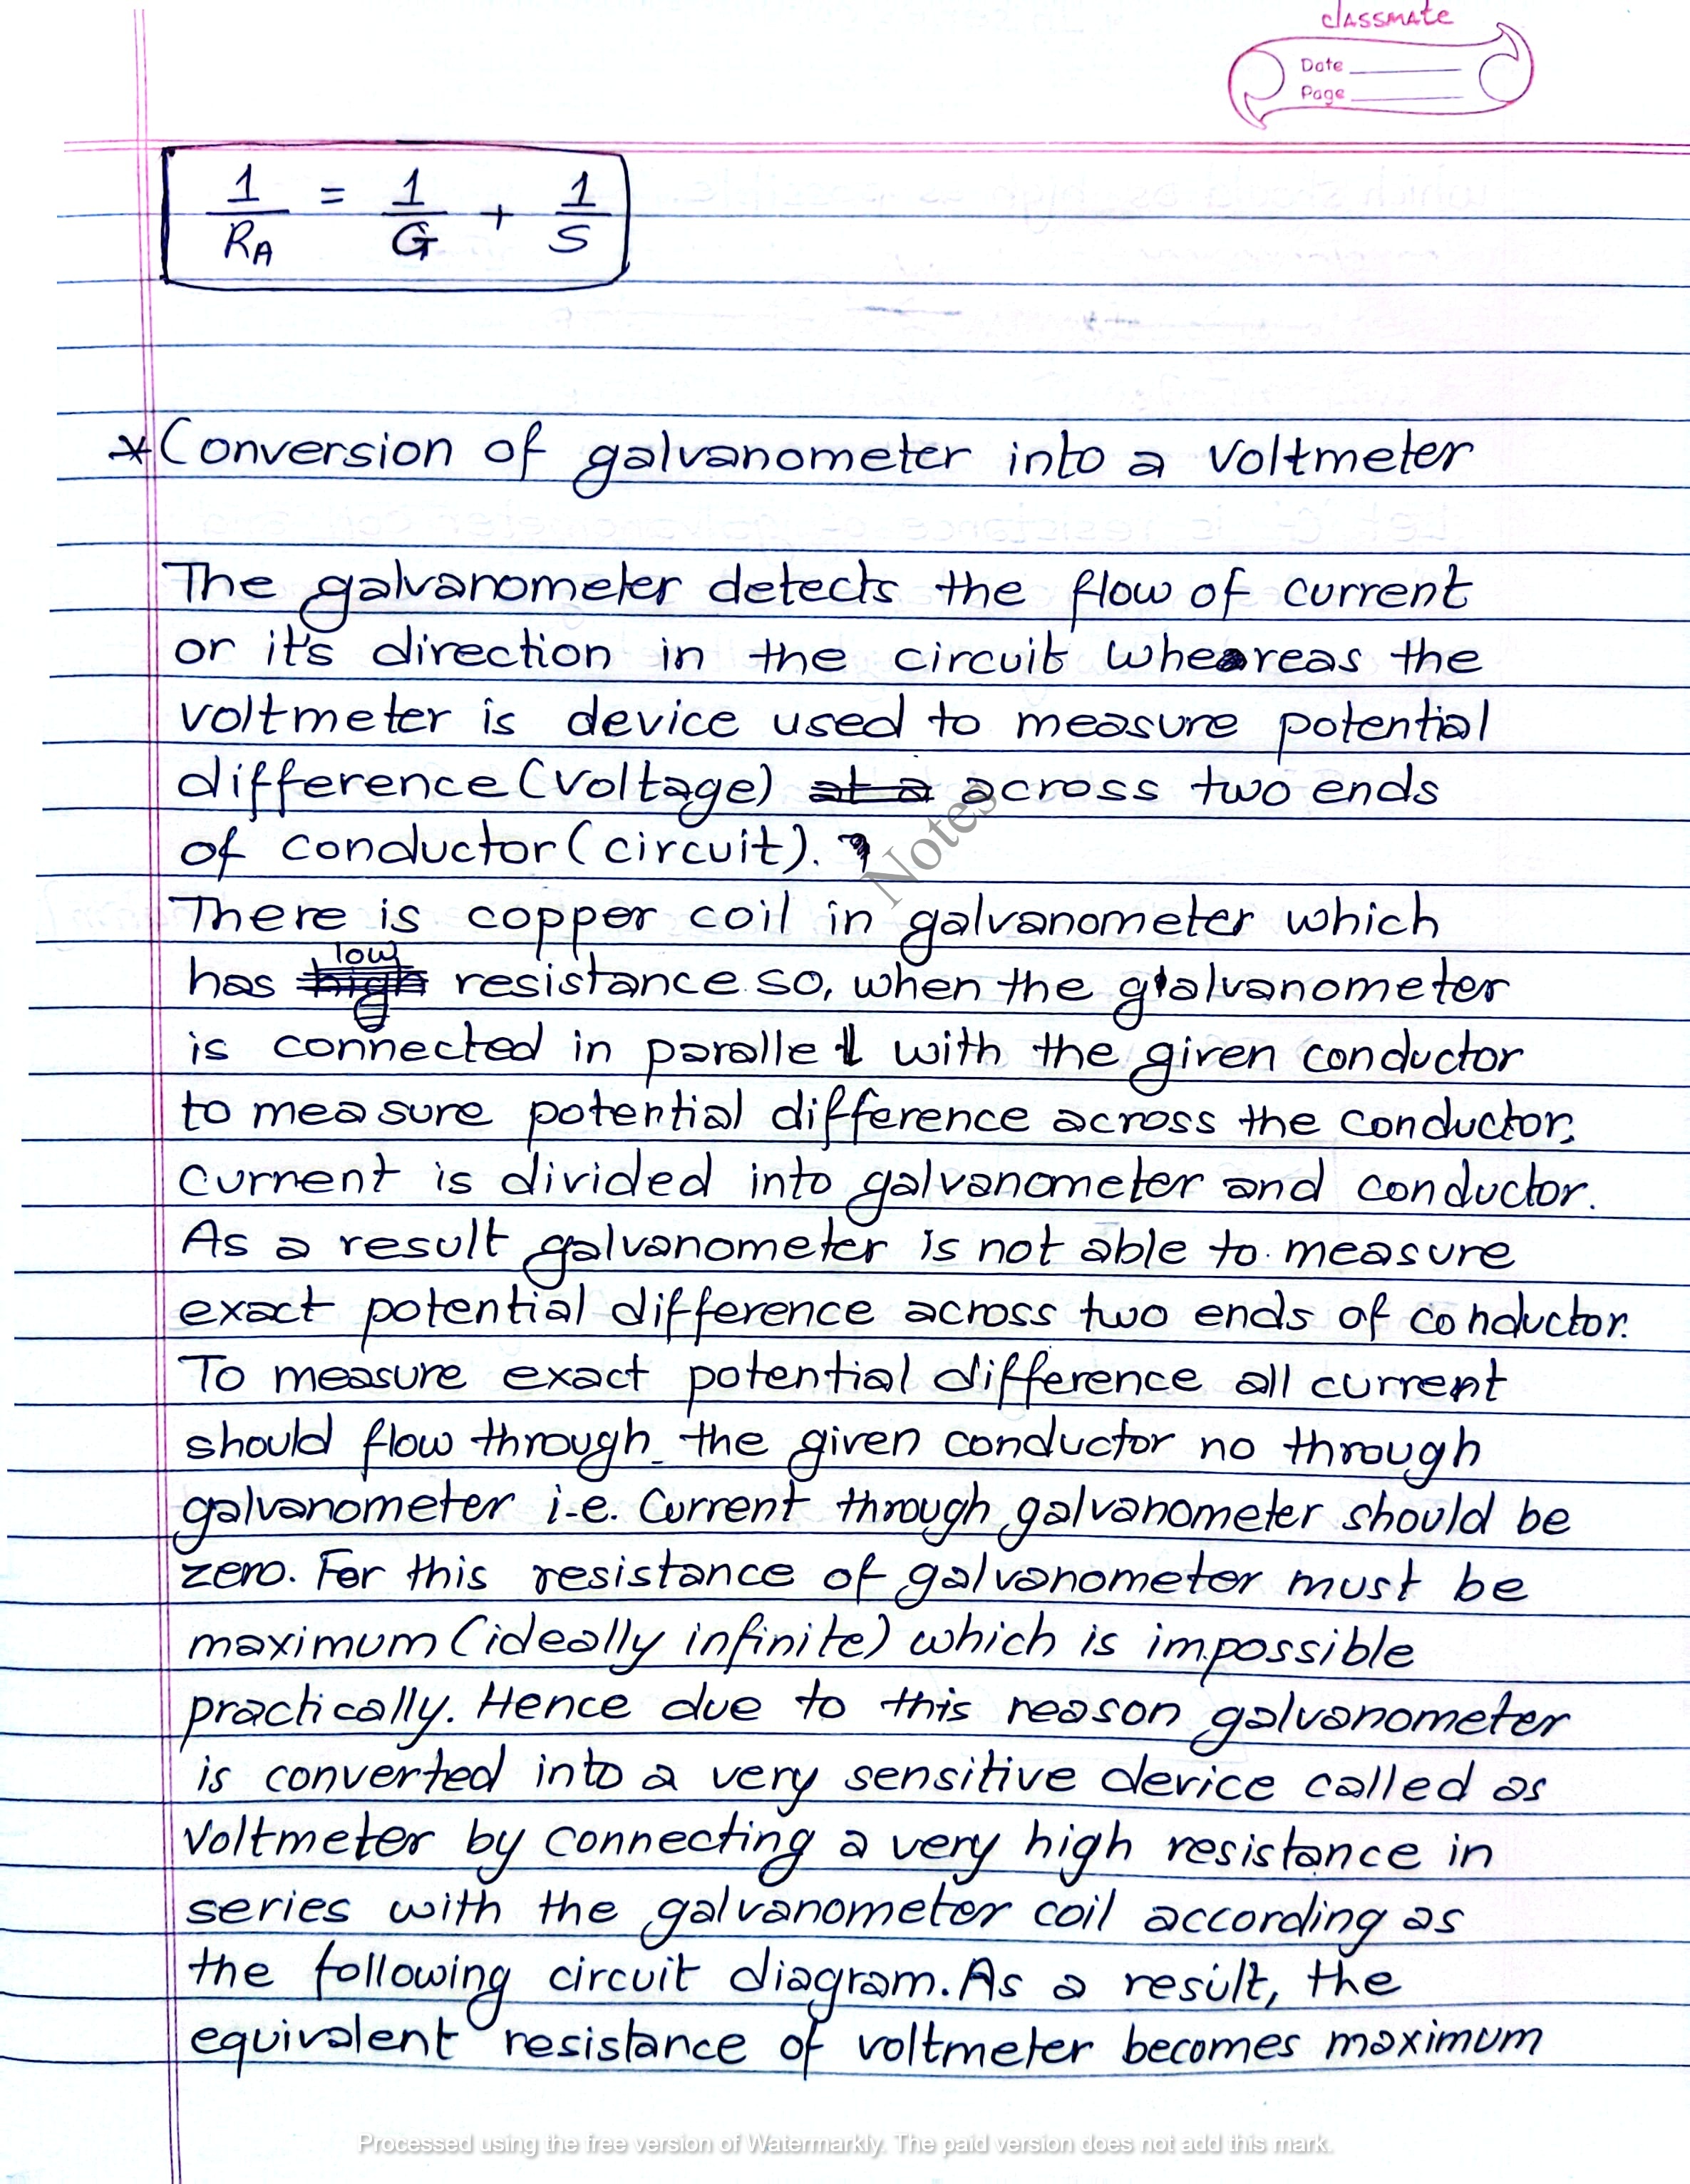 classmate
Date
Page
1/R_A = 1/G + 1/S
*Conversion of galvanometer into a voltmeter
The galvanometer detects the flow of current
or it's direction in the circuit wheareas the
voltmeter is device used to measure potential
difference (voltage) at a across two ends
of conductor (circuit).
Notes
There is copper coil in galvanometer which
has high low resistance so, when the galvanometer
is connected in parallel with the given conductor
to measure potential difference across the conductor,
current is divided into galvanometer and conductor.
As a result galvanometer is not able to measure
exact potential difference across two ends of conductor.
To measure exact potential difference all current
should flow through the given conductor no through
galvanometer i.e. Current through galvanometer should be
zero. For this resistance of galvanometer must be
maximum (ideally infinite) which is impossible
practically. Hence due to this reason galvanometer
is converted into a very sensitive device called as
Voltmeter by connecting a very high resistance in
series with the galvanometer coil according as
the following circuit diagram. As a result, the
equivalent resistance of voltmeter becomes maximum
Processed using the free version of Watermarkly. The paid version does not add this mark.